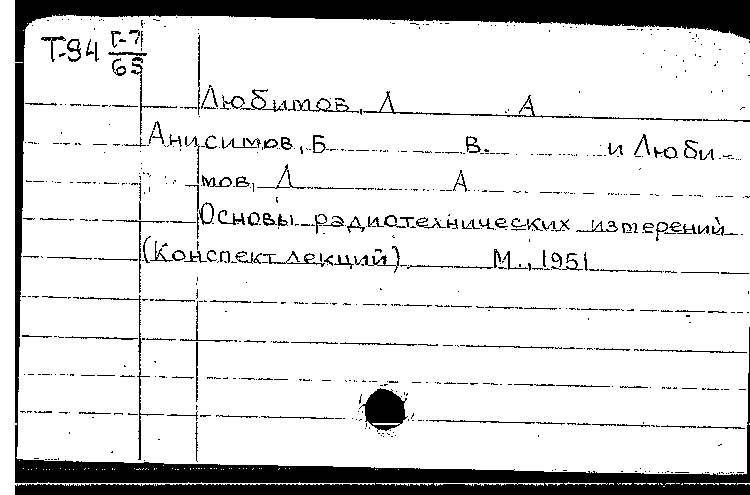 Т-94 Г-7
65
Любимов, Л А
Анисимов, Б В. и Люби-
мов, Л А
Основы радиотехнических измерений
(Конспект лекций) М., 1951